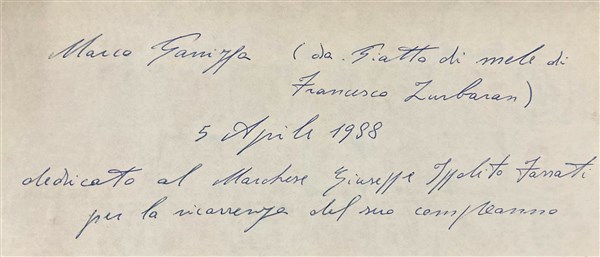 Marco (da. Piatto di mele di
Francesco Zurbaran)
5 Aprile 1988
dedicato al Marchese Giuseppe Ippolito
per la ricorrenza del suo compleanno